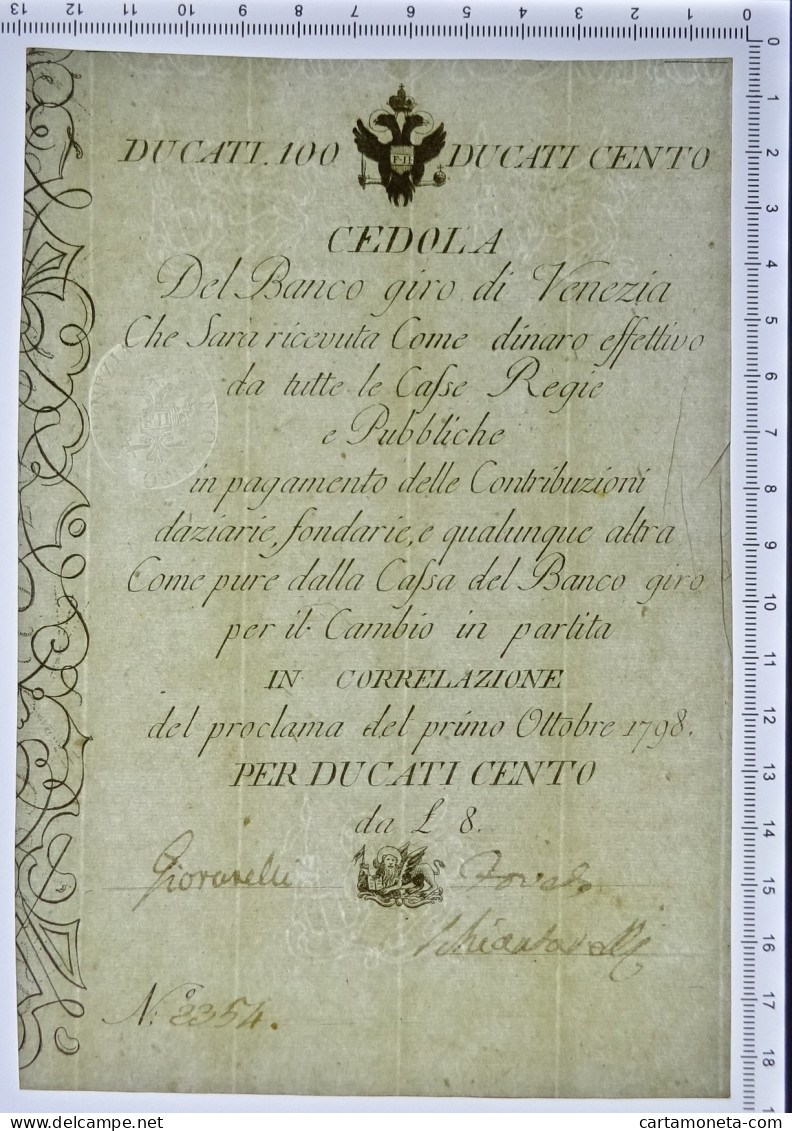 13 12 11 10 9 8 7 6 5 4 3 2 1 0
0
1
2
3
4
5
6
7
8
9
10
11
12
13
14
15
16
17
18
DUCATI. 100 DUCATI CENTO
F·II
CEDOLA
Del Banco giro di Venezia
Che Sarà ricevuta Come dinaro effettivo
da tutte le Casse Regie
e Pubbliche
in pagamento delle Contribuzioni
daziarie, fondarie, e qualunque altra
Come pure dalla Cassa del Banco giro
per il Cambio in partita
IN CORRELAZIONE
del proclama del primo Ottobre 1798.
PER DUCATI CENTO
da £ 8.
Giovanelli
N.° 2354.
cartamoneta-com